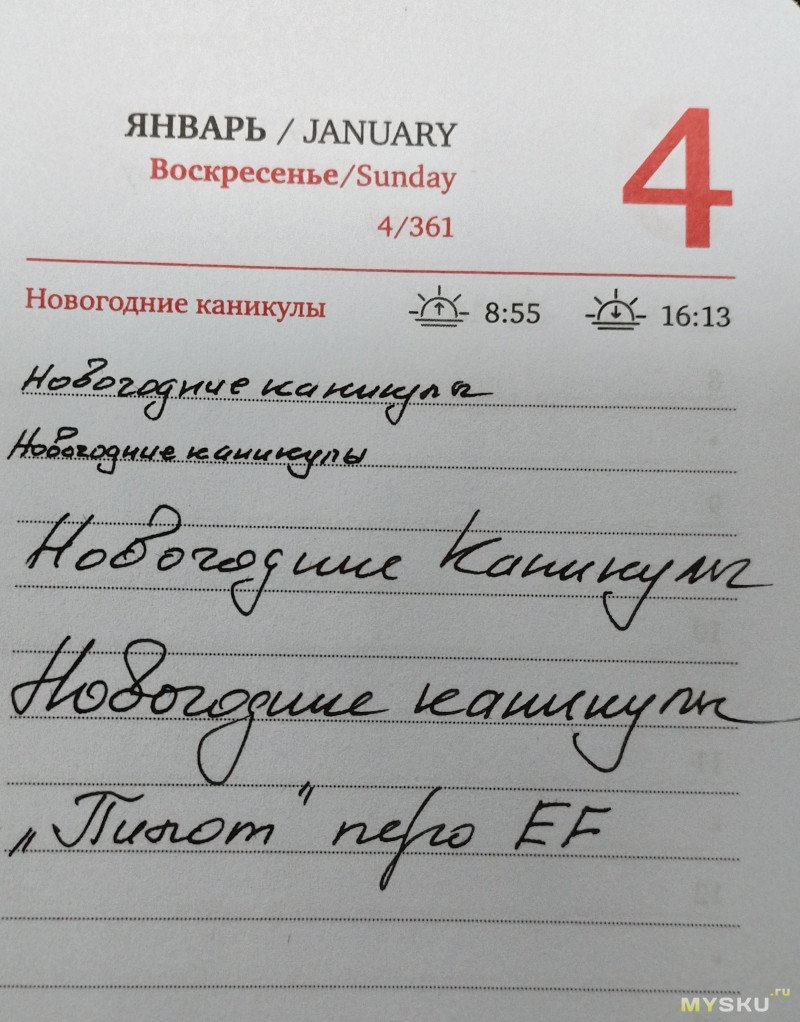 ЯНВАРЬ / JANUARY
4
Воскресенье/Sunday
4/361
Новогодние каникулы 8:55 16:13
Новогодние каникулы
Новогодние каникулы
Новогодние Каникулы
Новогодние каникулы
„Пилот" перо EF
MYSKU.ru